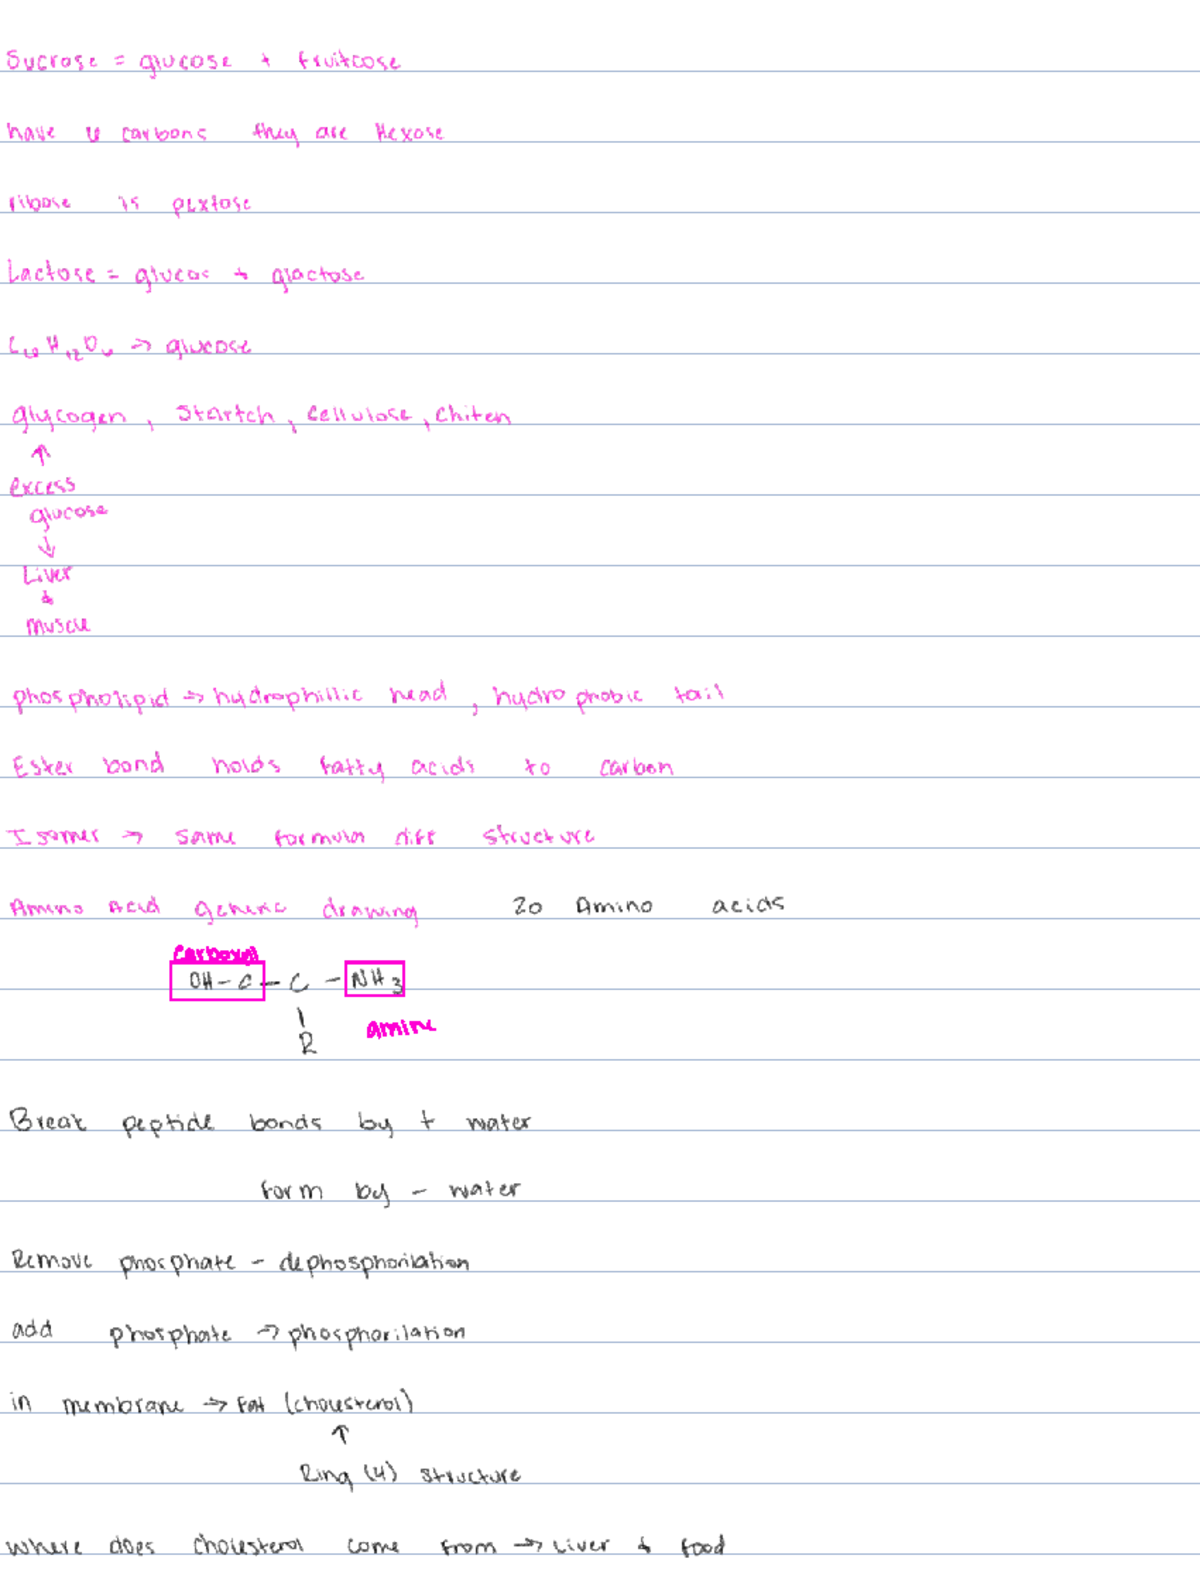 Sucrose = glucose + fruitcose
have 6 carbons they are Hexose
ribose is pextose
Lactose = glucos + glactose
C6H12O6 → glucose
glycogen, startch, cellulose, chiten
↑
excess
glucose
↓
Liver
+
muscle
phospholipid → hydrophillic head, hydrophobic tail
Ester bond holds fatty acids to carbon
Isomer → same formula diff structure
Amino Acid generic drawing 20 Amino acids
carboxyl
OH - C - C - NH3
R
amine
Break peptide bonds by + water
form by - water
Remove phosphate - dephosphorilation
add phosphate → phosphorilation
in membrane → Fat (cholesterol)
↑
Ring (4) structure
where does cholesterol come from → Liver + food